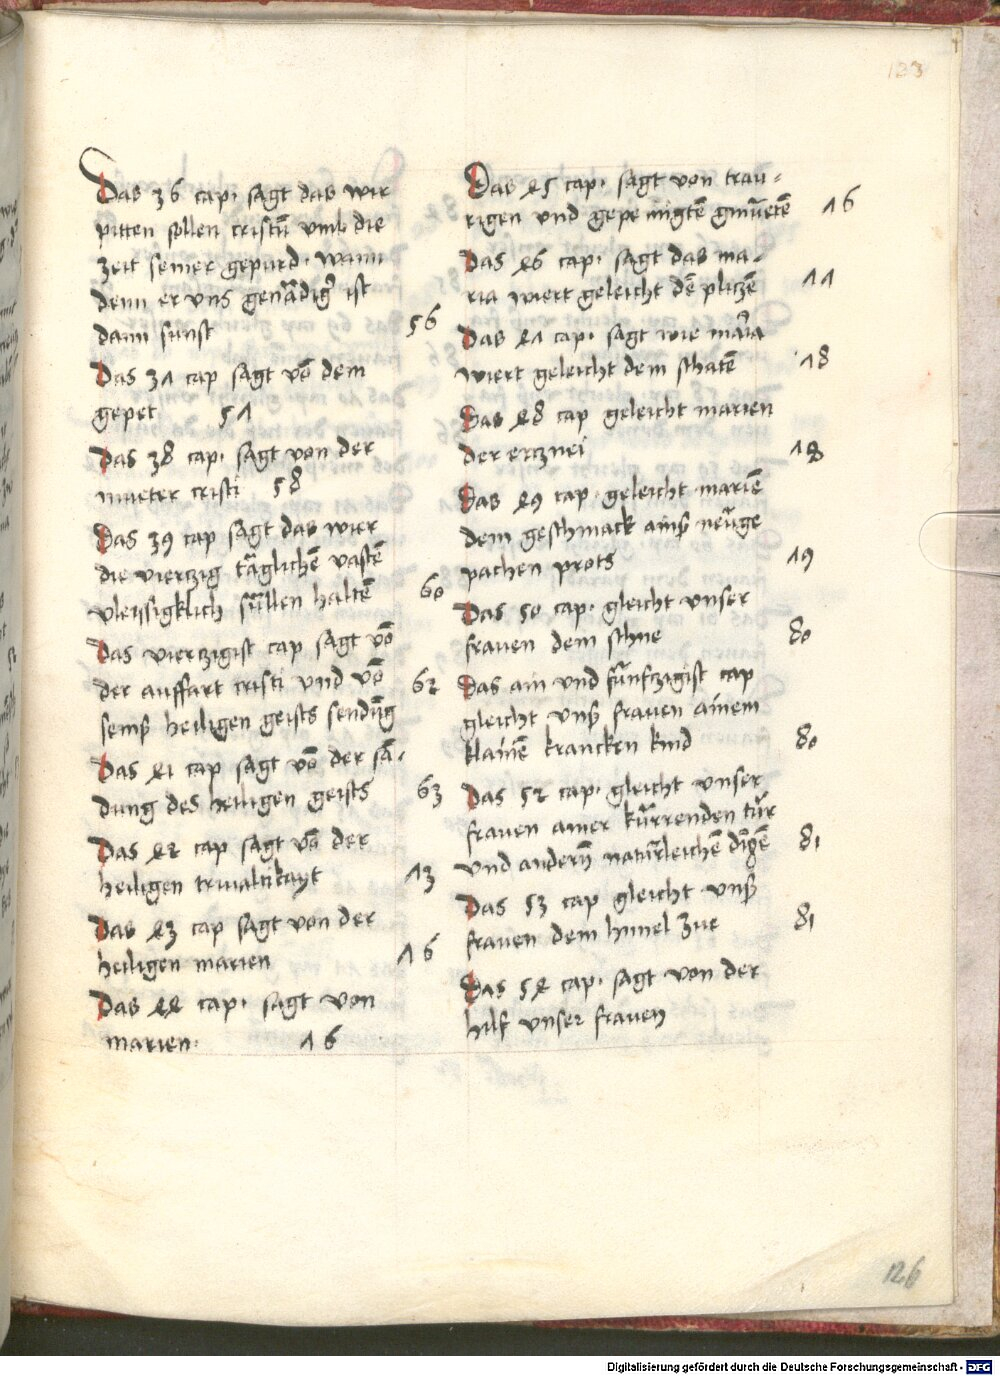 123
Das 36 cap. sagt das wir
pitten sollen cristū vmb die
zeit seiner gepurd. wann
denn er vns genädig ist
dann sunst 56
Das 37 cap sagt vō dem
gepet 57
Das 38 cap. sagt von der
mueter cristi 58
Das 39 cap sagt das wier
die vierczig täglichē vastē
vleissigklich süllen haltē 60
Das vierczigist cap sagt vō
der auffart cristi vnd vō 62
seinß heiligen geists sendūg
Das 41 cap sagt vō der sā-
dung des heiligen geists 63
Das 42 cap sagt vō der
heiligen triualtikayt 73
Das 43 cap sagt von der
heiligen marien 76
Das 44 cap. sagt von
marien. 76
Das 45 cap. sagt von trau-
rigen vnd gepeinigtē gmüetē 76
Das 46 cap. sagt das ma-
ria wiert geleicht dē pliczē 77
Das 47 cap. sagt wie maria
wiert geleicht dem schatē 78
Das 48 cap geleicht marien
der ercznei 78
Das 49 cap. geleicht mariē
dem geschmack ainß neuge
pachen prots 79
Das 50 cap. gleicht vnser
frauen dem schne 80
Das ain vnd fünfczigist cap
gleicht vnß frauen ainem
klainē krancken kind 80
Das 52 cap. gleicht vnser
frauen ainer kürrenden tür
vnd anderñ natürleichē dingē 81
Das 53 cap gleicht vnß
frauen dem himel zue 81
Das 54 cap. sagt von der
hilf vnser frauen
126
Digitalisierung gefördert durch die Deutsche Forschungsgemeinschaft - DFG